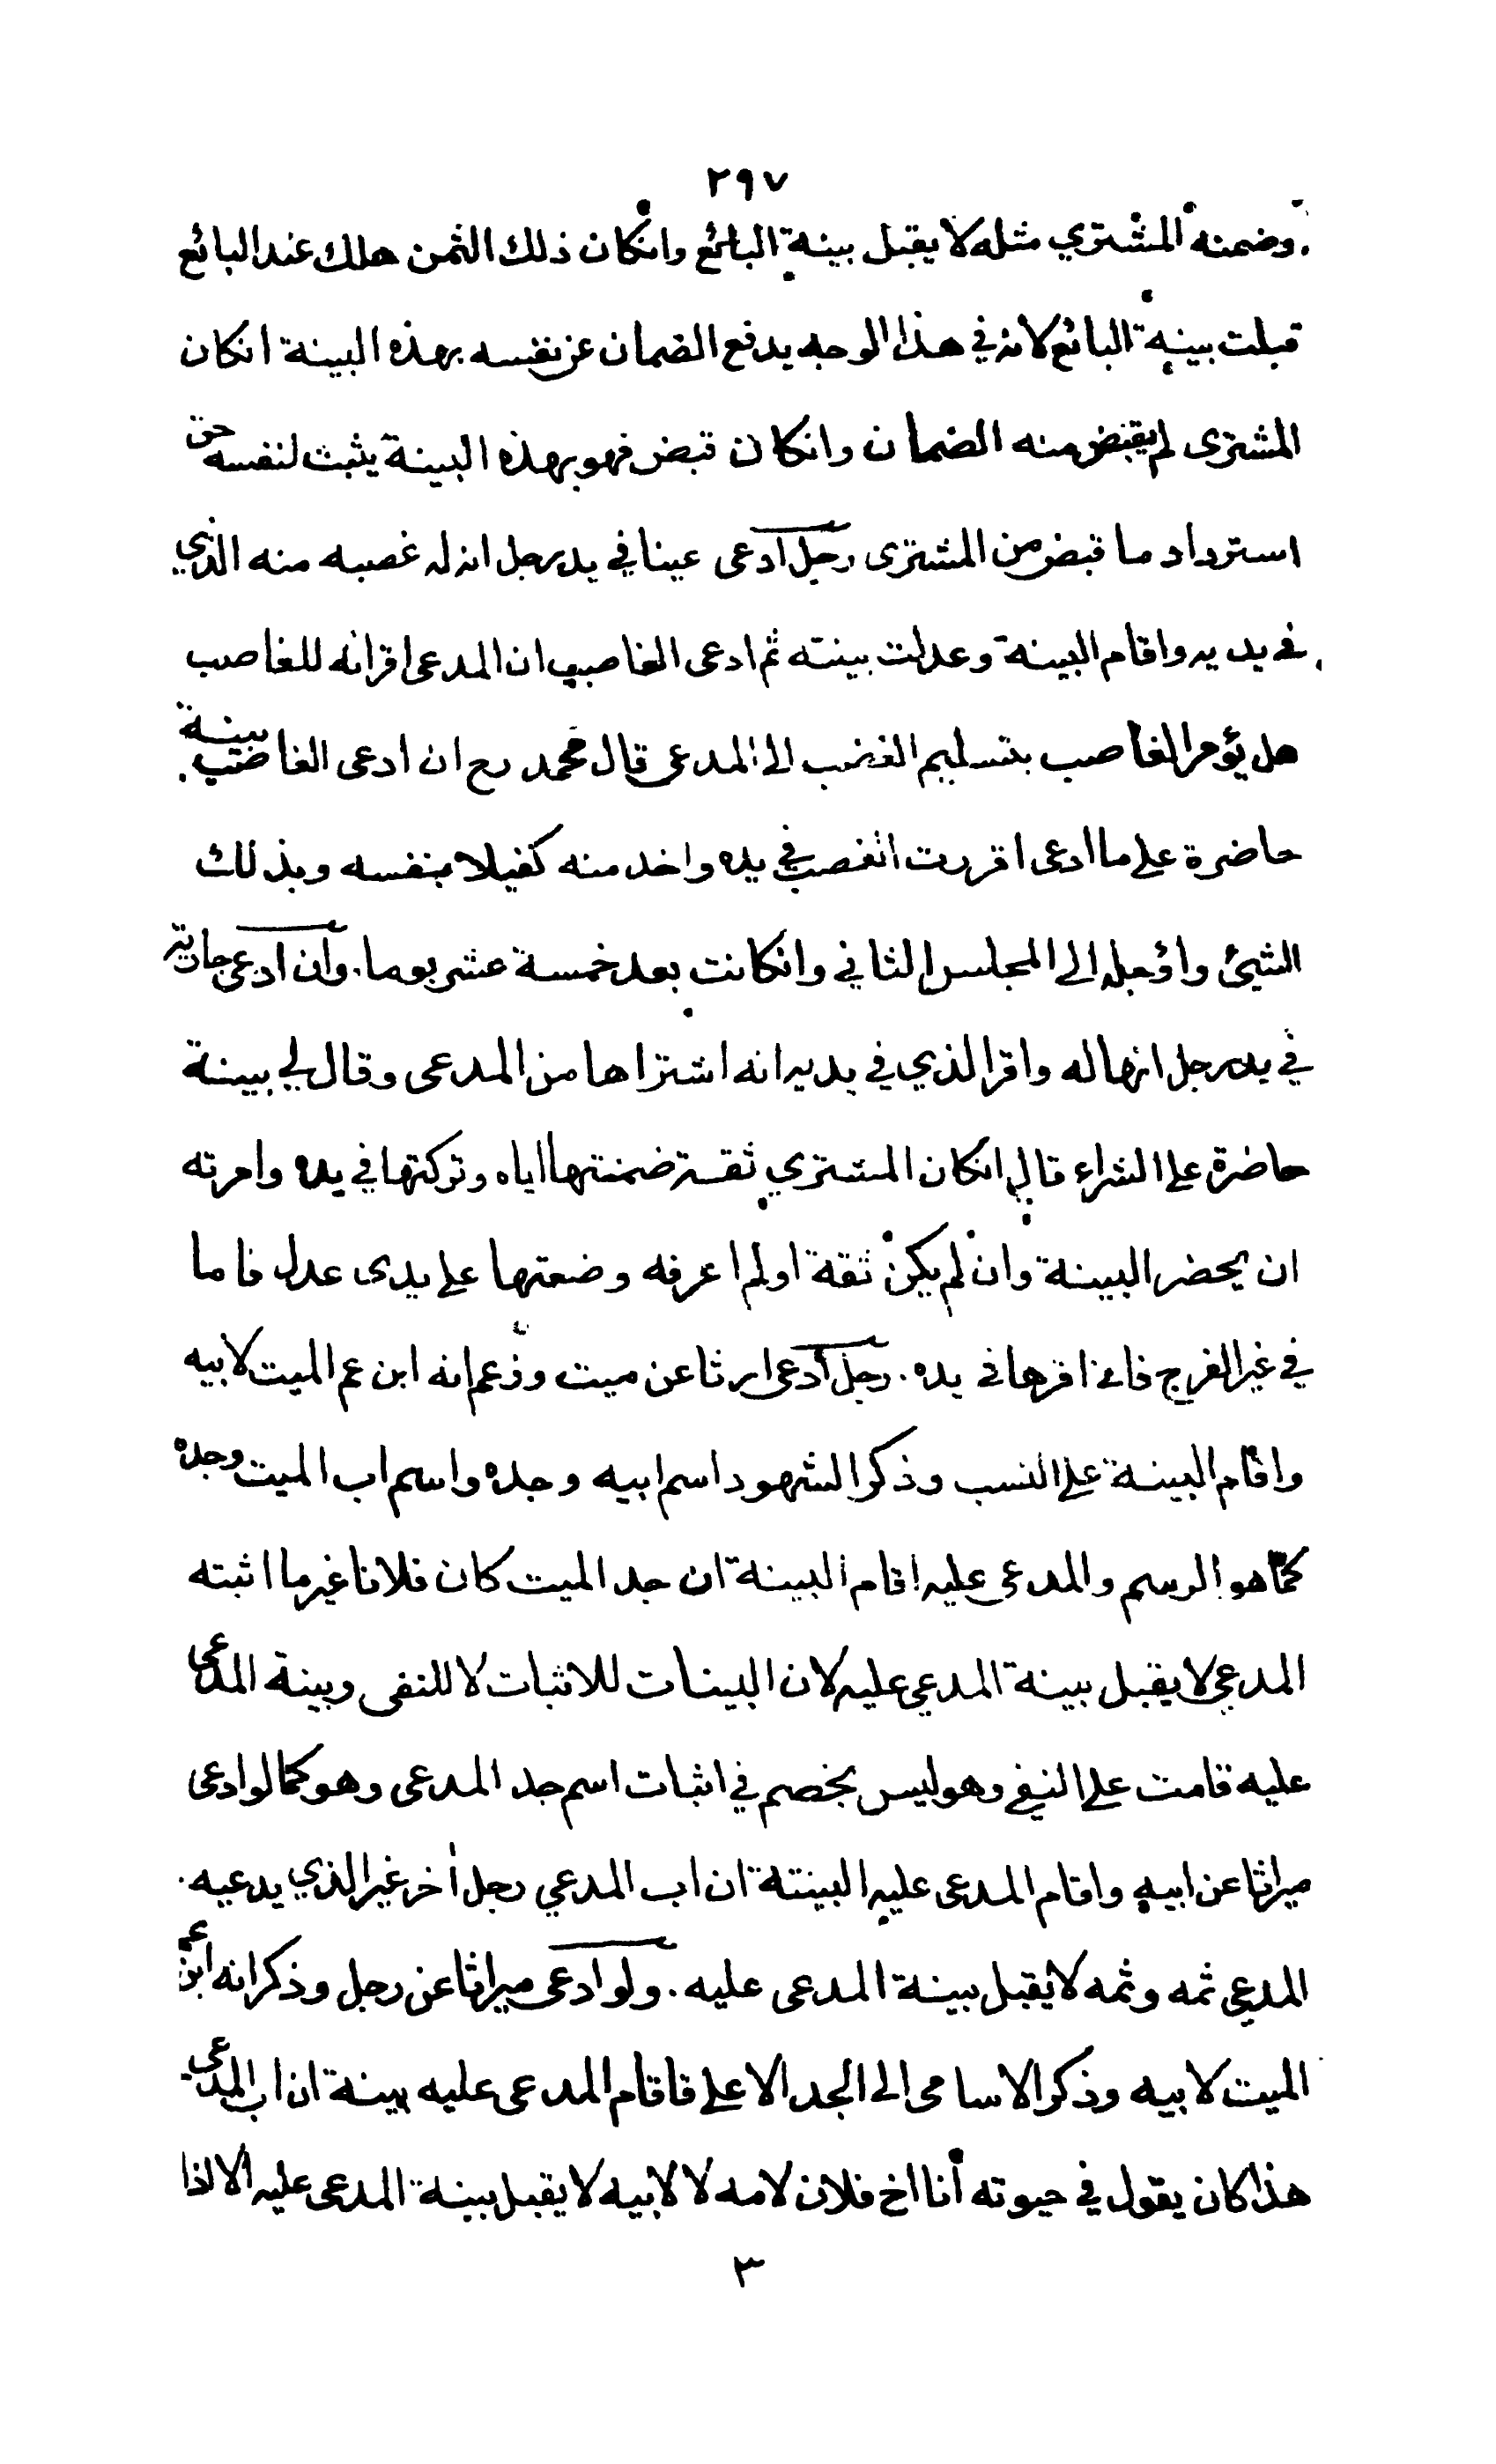 ٢٩٧
وضمنه المشتري مثله لا يقبل بينة البائع وانكان ذلك الثمن هلك عند البائع
قبلت بينة البائع لانه في هذا الوجه يدفع الضمان عن نفسه بهذه البينة انكان
المشترى لم يقبض منه الضمان وانكان قبض فهو بهذه البينة يثبت لنفسه حق
استرداد ما قبض من المشترى رجل ادعى عينا في يد رجل انه له غصبه منه الذي
في يديه واقام البينة وعدلت بينته ثم ادعى الغاصب ان المدعى اقر انه للغاصب
هل يؤمر الغاصب بتسليم الغصب الى المدعى قال محمد رح ان ادعى الغاصب بينة
حاضرة على ما ادعى اقررت الغصب في يده واخذ منه كفيلا بنفسه وبذلك
الشيئ واؤجله الى المجلس الثاني وانكانت بعد خمسة عشر يوما. وان ادعى جارية
في يد رجل انها له واقر الذي في يديه انه اشتراها من المدعى وقال لي بينة
حاضرة على الشراء قال انكان المشتري ثقة ضمنتها اياه وتركتها في يده وامرته
ان يحضر البينة وان لم يكن ثقة او لم اعرفه وضعتها على يدى عدل فاما
في غير الفرج فانى اقرها في يده. رجل ادعى ارثا عن ميت وزعم انه ابن عم الميت لابيه
واقام البينة على النسب وذكر الشهود اسم ابيه وجده واسم اب الميت وجده
كما هو الرسم والمدعى عليه اقام البينة ان جد الميت كان فلانا غير ما اثبته
المدعي لا يقبل بينة المدعي عليه لان البينات للاثبات لا للنفى وبينة المدعى
عليه قامت على النفي وهو ليس بخصم في اثبات اسم جد المدعى وهو كما لو ادعى
ميراثا عن ابيه واقام المدعى عليه البينتة ان اب المدعي رجل أخر غير الذي يدعيه
المدعي ثمه وثمه لا يقبل بينة المدعى عليه. ولو ادعى ميراثا عن رجل وذكر انه ابن عم
الميت لابيه وذكر الاسامى الى الجد الاعلى فاقام المدعى عليه بينة ان اب المدعى
هذا كان يقول في حيوته أنا اخ فلان لامه لا لابيه لا يقبل بينة المدعى عليه الا اذا
٣